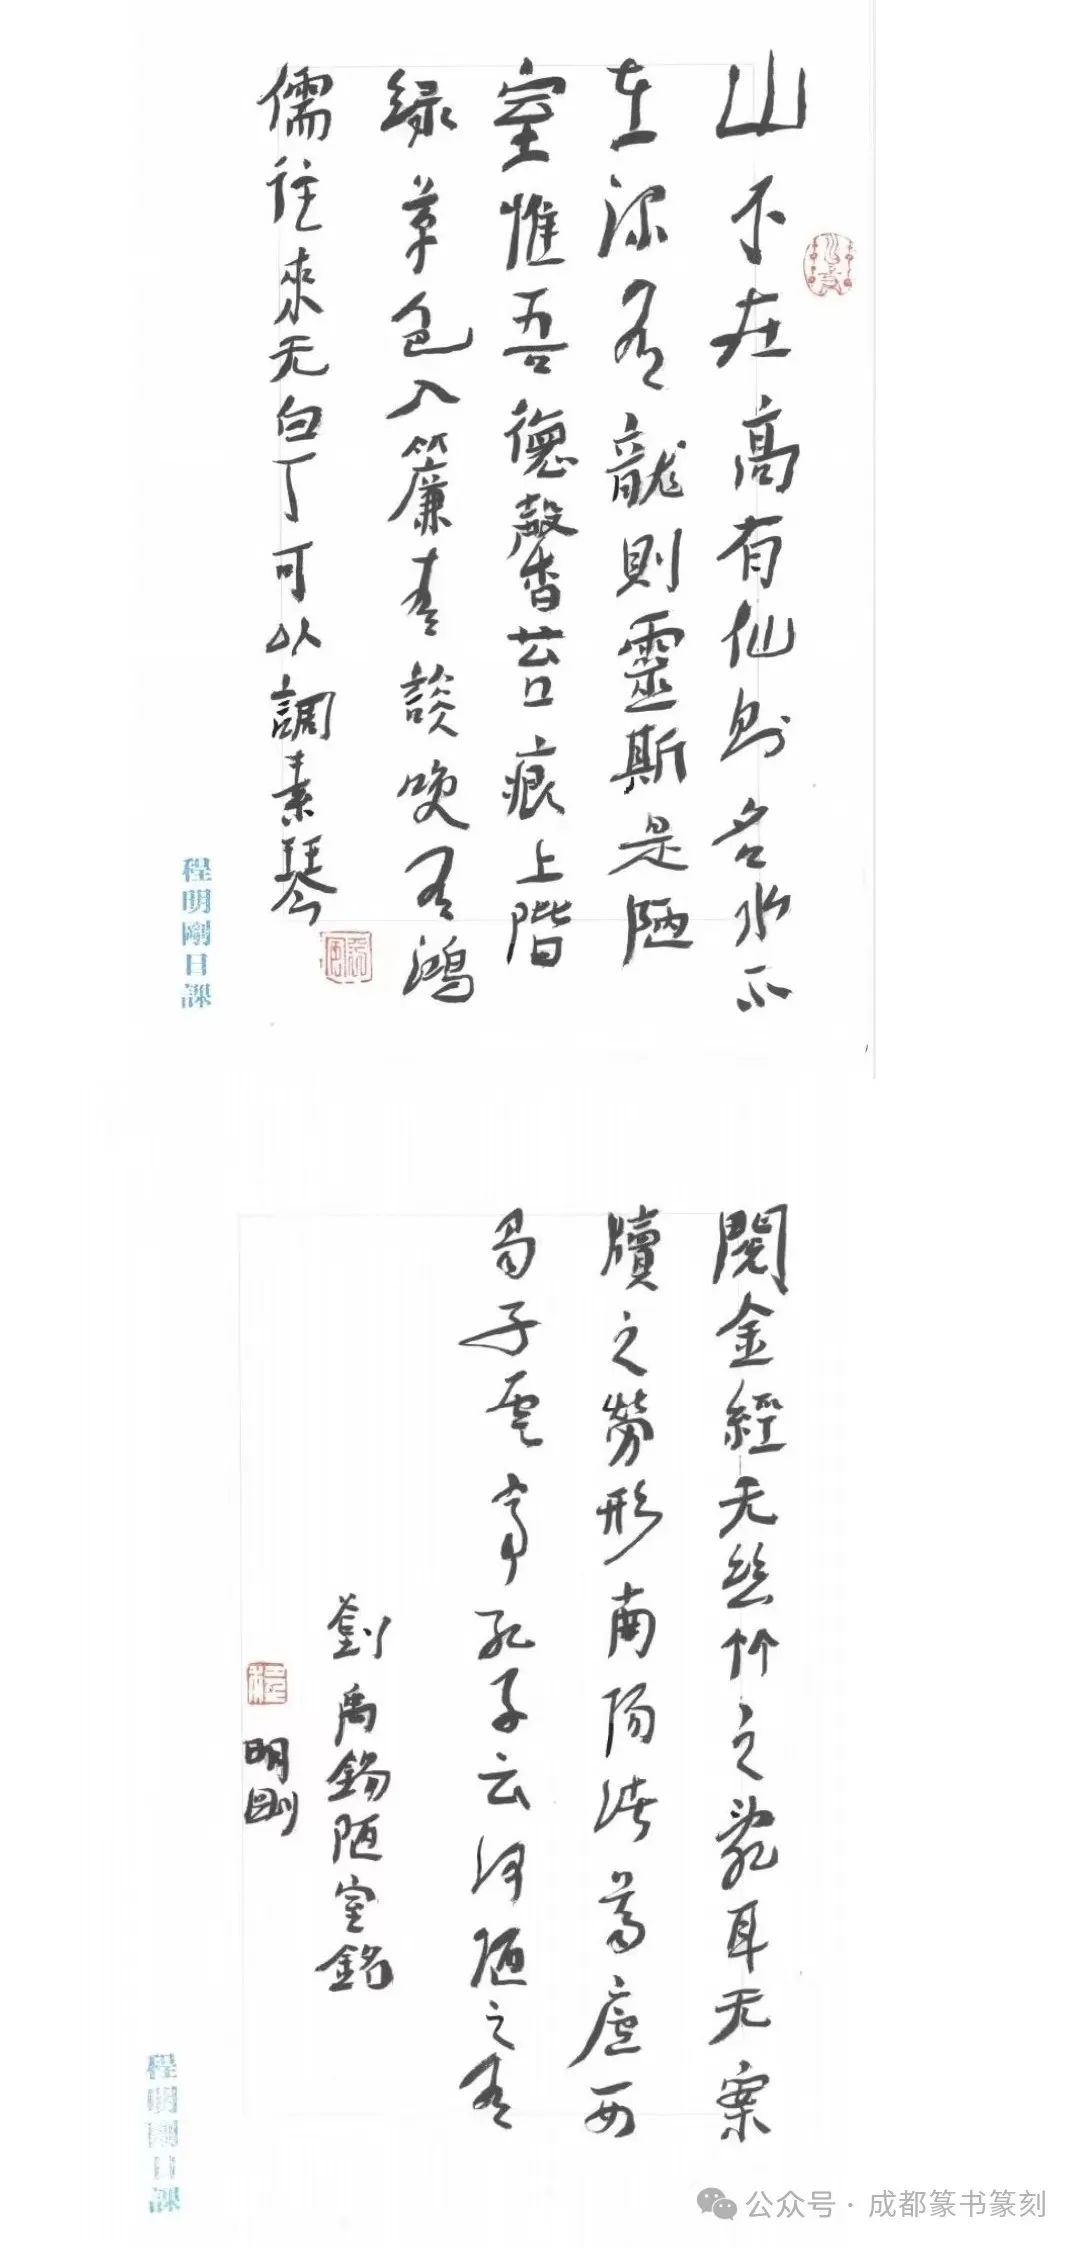 山不在高有仙则名水不
在深有龍則靈斯是陋
室惟吾德馨苔痕上階
緑草色入簾青談笑有鴻
儒往來无白丁可以調素琴
程明剛日課
閲金經无丝竹之亂耳无案
牘之勞形南阳诸葛庐西
蜀子雲亭孔子云何陋之有
劉禹錫陋室銘
明剛
程明剛日課
公众号 · 成都篆书篆刻